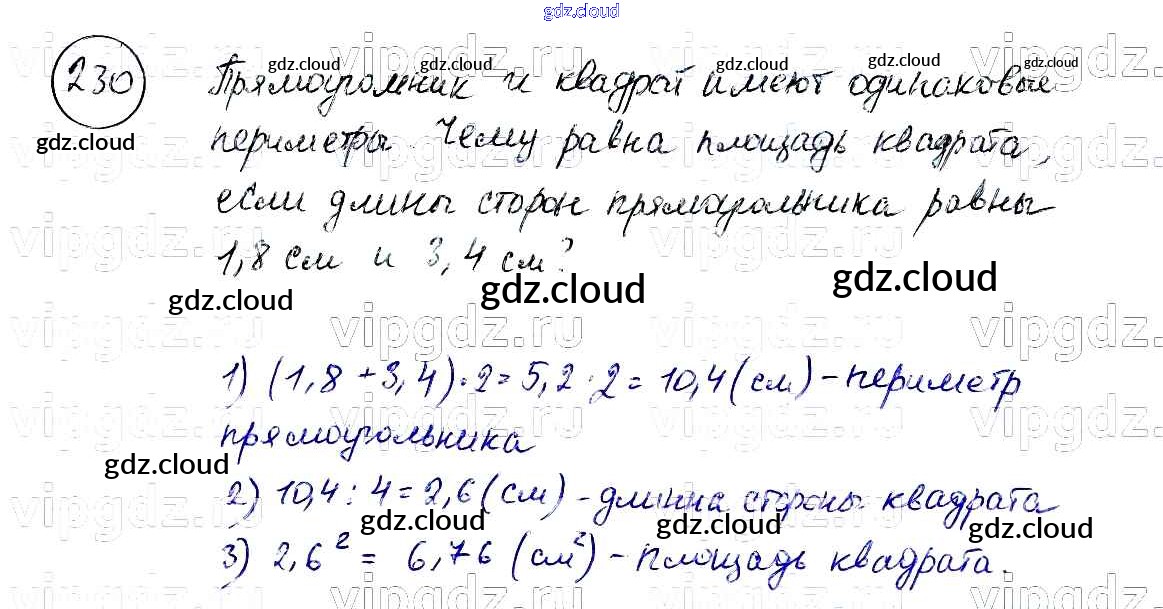 gdz.cloud
230
gdz.cloud gdz.cloud gdz.cloud gdz.cloud
Прямоугольник и квадрат имеют одинаковые
gdz.cloud
периметры. Чему равна площадь квадрата,
если длины сторон прямоугольника равны
1,8 см и 3,4 см?
gdz.cloud gdz.cloud gdz.cloud
vipgdz.ru vipgdz.ru vipgdz.ru vipgdz.
1) (1,8 + 3,4) · 2 = 5,2 · 2 = 10,4 (см) - периметр
прямоугольника
gdz.cloud
2) 10,4 : 4 = 2,6 (см) - длинна стороны квадрата
gdz.cloud gdz.cloud gdz.cloud
3) 2,6² = 6,76 (см²) - площадь квадрата.